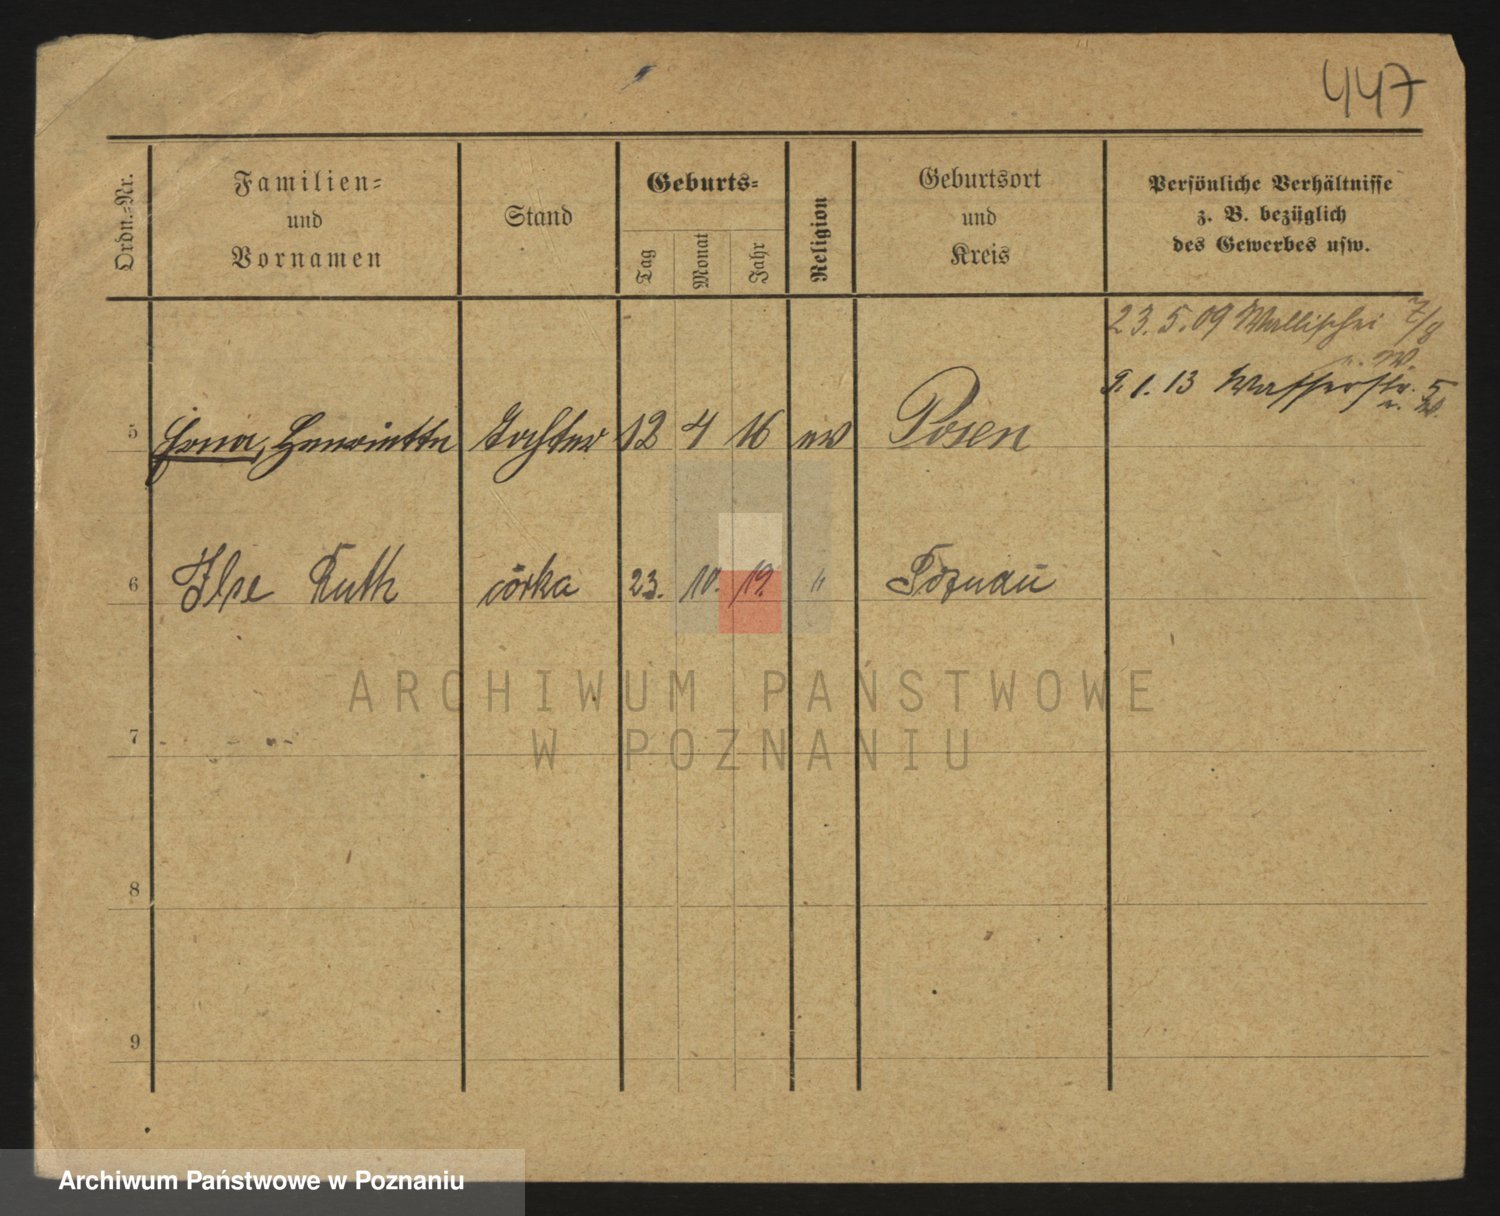 447
Ordn.-Nr.
Familien-
und
Vornamen
Stand
Geburts-
Tag
Monat
Jahr
Religion
Geburtsort
und
Kreis
Persönliche Verhältnisse
z. B. bezüglich
des Gewerbes usw.
23. 5. 09 Wallischei 7/8
u. W.
9. 1. 13 Wasserstr. 5
u. W.
5 Erna, Henriette Tochter 12 4 16 ev Posen
6 Ilse Ruth córka 23. 10. 19. " Poznań
ARCHIWUM PAŃSTWOWE
W POZNANIU
7
8
9
Archiwum Państwowe w Poznaniu